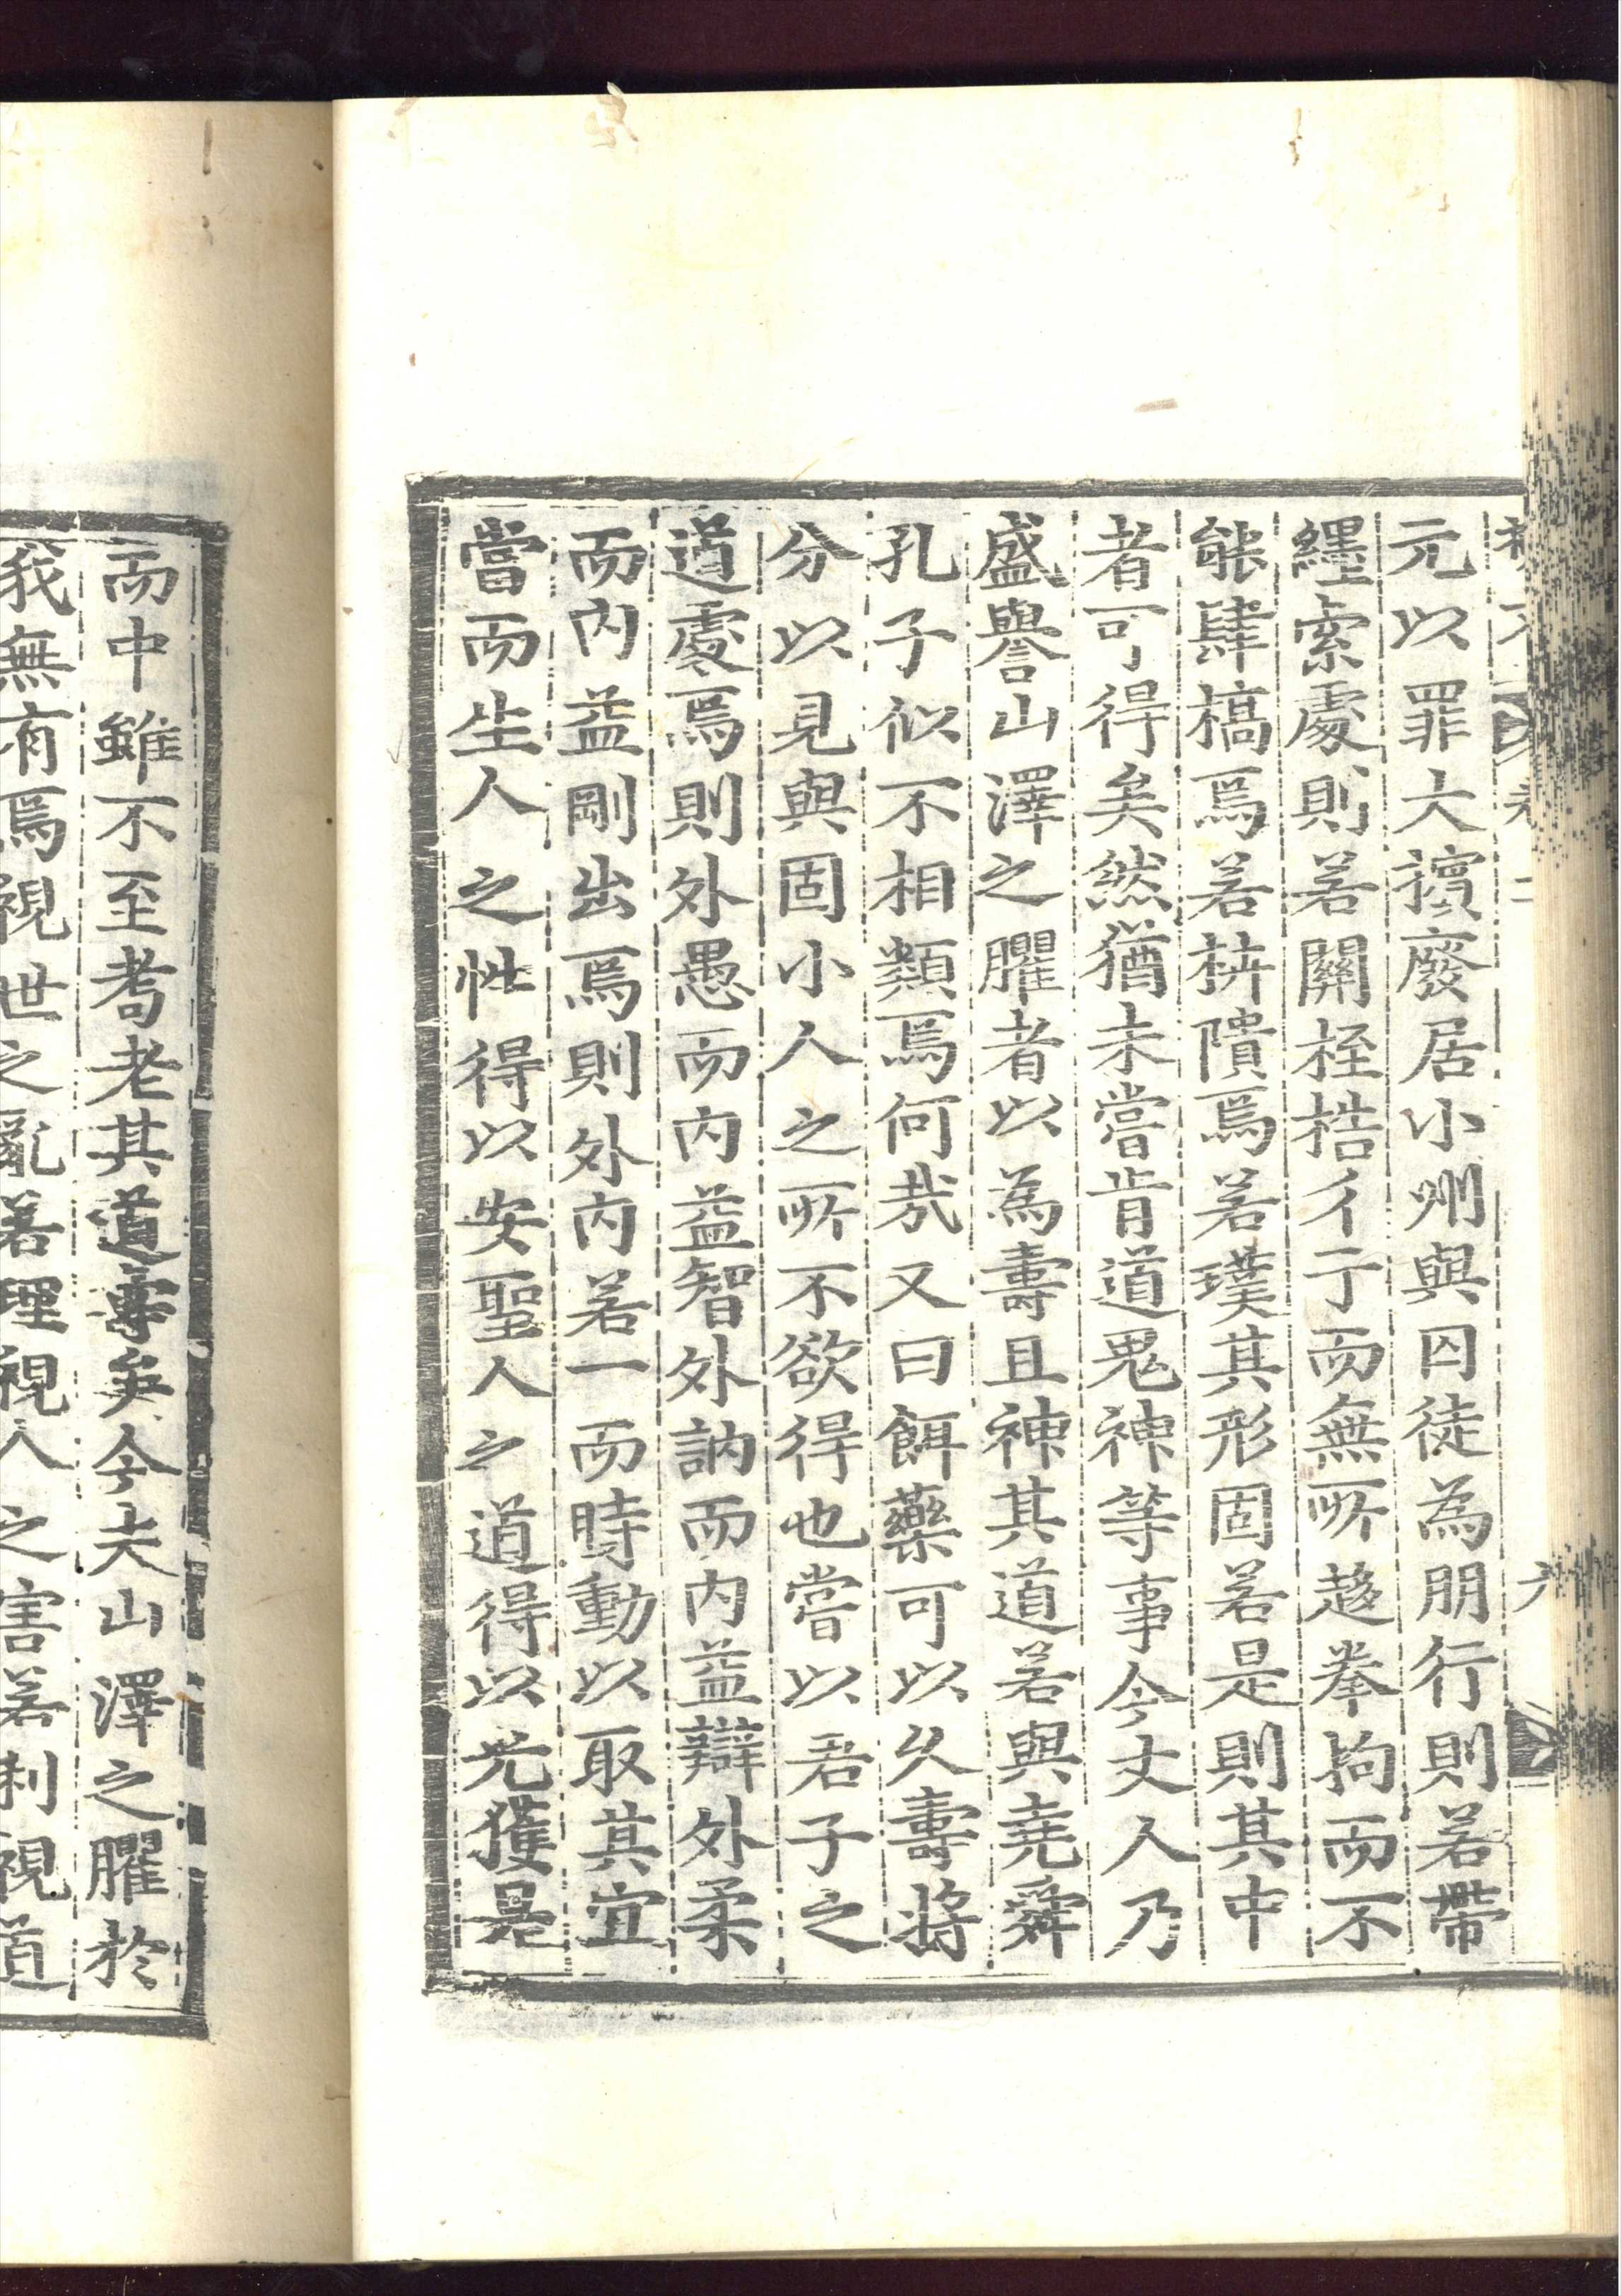 元以罪大擯廢居小州與囚徒為朋行則若帶
纆索處則若關桎梏彳亍而無所趍拳拘而不
能肆槁焉若枿隤焉若璞其形固若是則其中
者可得矣然猶未嘗肯道鬼神等事今丈人乃
盛譽山澤之臞者以為壽且神其道若與堯舜
孔子似不相類焉何哉又曰餌藥可以久壽將
分以見與固小人之所不欲得也嘗以君子之
道處焉則外愚而內益智外訥而內益辯外柔
而內益剛出焉則外內若一而時動以取其宜
當而生人之性得以安聖人之道得以光獲是
而中雖不至耇老其道壽矣今夫山澤之臞於
我無有焉視世之亂若理視人之害若利視道